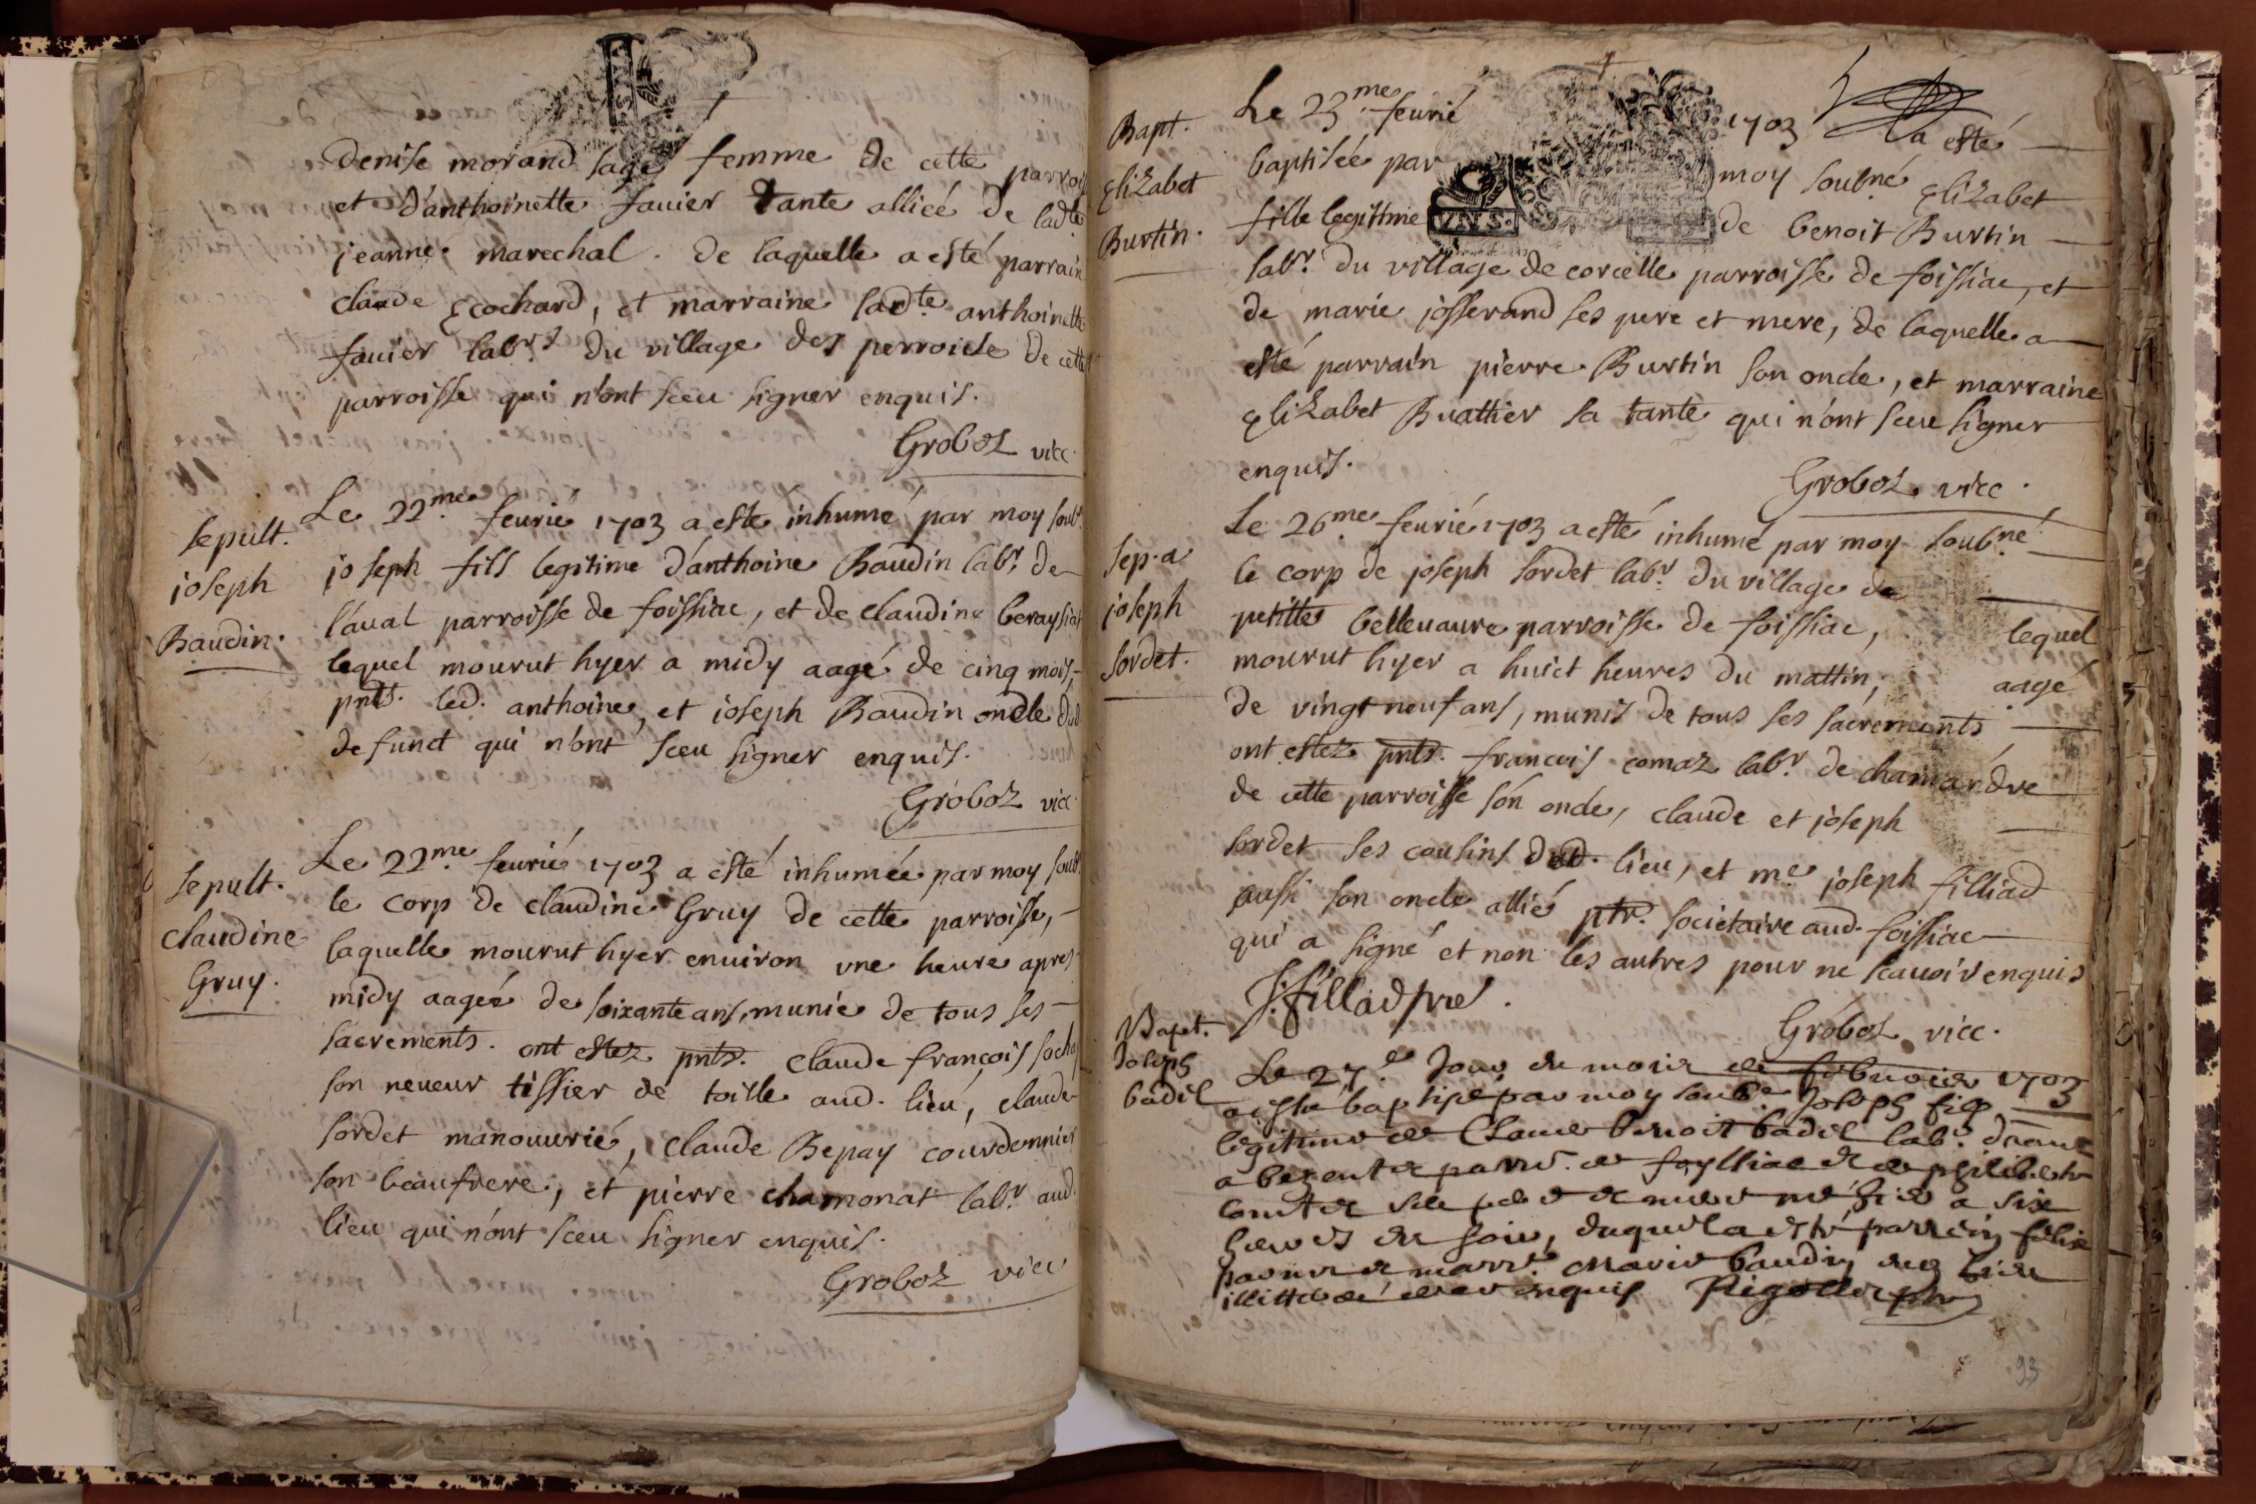 denise morand sage femme de cette parroi
et d'anthoinette fauier tante alliée de ladte
jeanne marechal. de laquelle a esté parrain
claude Ecochard, et marraine ladte anthoinette
fauier labrs du village des perroise de cette
parroisse qui n'ont sceu signer enquis.
Groboz vicc.
Sepult.
joseph
Baudin.
Le 22me feurié 1703 a esté inhumé par moy soub
joseph fils legitime d'anthoine Baudin labr de
laual parroisse de foissiac, et de claudine
lequel mourut hyer a midy aagé de cinq mois,
pnts. led. anthoine, et joseph Baudin oncle dud
defunct qui n'ont sceu signer enquis.
Groboz vicc.
Sepult.
claudine
Gruy.
Le 22me feurié 1703 a esté inhumée par moy soub
le corp de claudine Gruy de cette parroisse,
laquelle mourut hyer enuiron vne heure apres
midy aageé de soixante ans, munie de tous ses
sacrements. ont estez pnts. claude françois
son neueur tissier de toille aud. lieu, claude
sordet manouurié, claude Bepay courdonnier
son beaufrere, et pierre chamonat labr. aud.
lieu qui n'ont sceu signer enquis.
Groboz vicc
Bapt.
Elizabet
Burtin.
Le 23me feurié 1703 a esté
baptisée par moy soubné Elizabet
fille legittime de benoit Burtin
labr. du village de corcelle parroisse de foissiac, et
de marie josserand ses pere et mere, de laquelle a
esté parrain pierre Burtin son oncle, et marraine
Elizabet Buattier sa tante qui n'ont sceu signer
enquis.
Groboz vicc.
Sep. a
joseph
Sordet.
Le 26me feurié 1703 a esté inhumé par moy soubné
le corp de joseph sordet labr. du village de
petitte belleuaure parroisse de foissiac, lequel
mourut hyer a huict heures du mattin, aagé
de vingt neuf ans, munis de tous ses sacrements
ont estez pnts. francois comaz labr. de chamandre
de cette parroisse son oncle, claude et joseph
sordet ses cousins dud. lieu, et me joseph filliad
aussi son oncle allié ptr. societaire aud. foissiac
qui a signé et non les autres pour ne scauoir enquis
J. filliad ptre.
Groboz vicc.
Bapt.
Joseph
badil
Le 27e Jour du mois de 1703
a esté baptisé par moy Joseph fils
legitime de Claude benoit badil labr.
parr. de et de
a six
heures du soir, duquel a esté parrein felix
et marr. Marie baudin
enquis